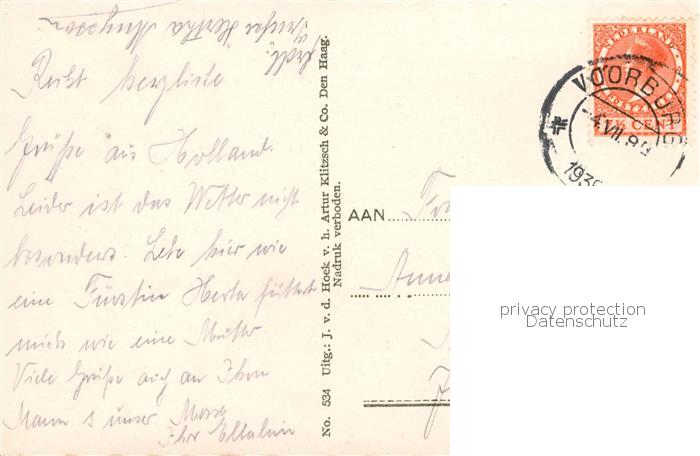 Recht herzliche
Grüße aus Holland.
Leider ist das Wetter nicht
besonders. Lebe hier wie
eine Fürstin Herta füttert
mich wie eine Mutter.
Viele Grüße auch an Ihren
Mann & unser
Ihre
No. 534 Uitg.: J. v. d. Hoek v. h. Artur Klitzsch & Co. Den Haag.
Nadruk verboden.
NEDERLAND
CENT
VOORBURG
4.VII.8
193
AAN
privacy protection
Datenschutz